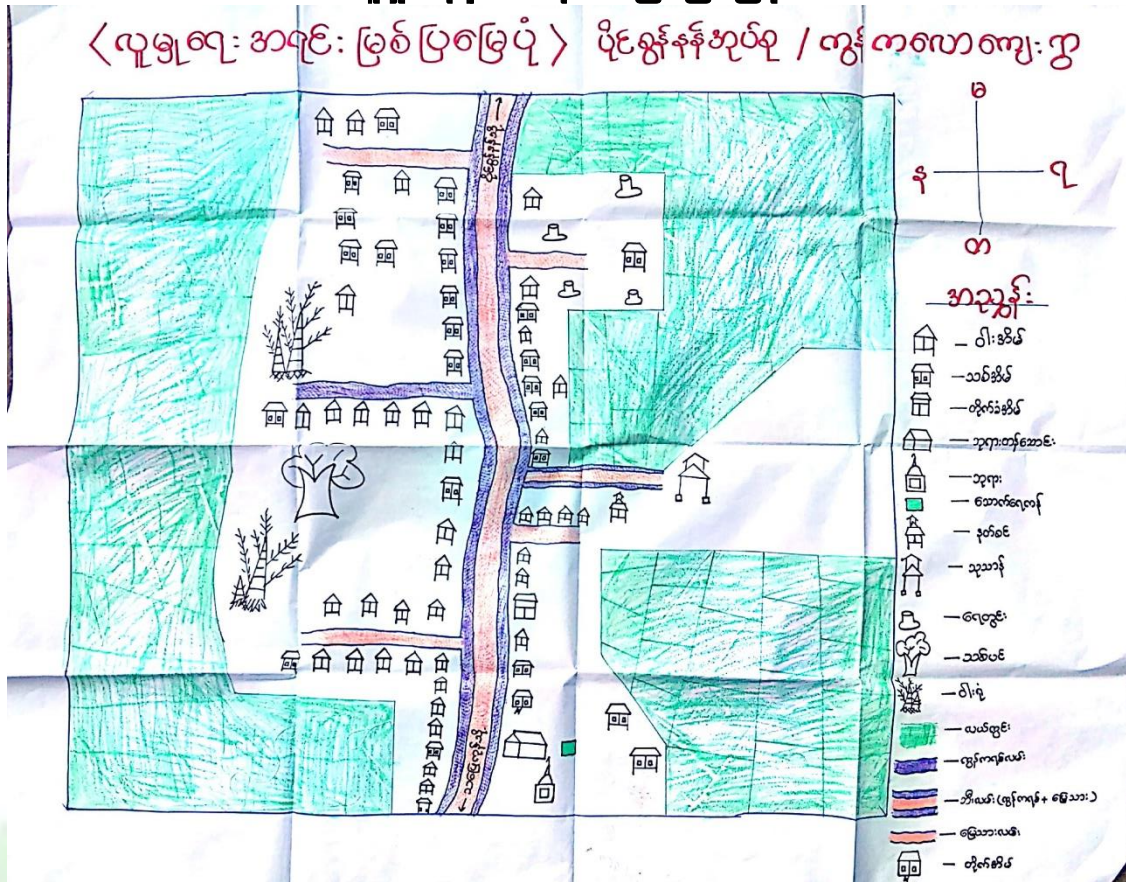 < လူမှုရေး အရင်း မြစ်ပြမြေပုံ > ပိုင်ရွန်နန်အုပ်စု / ကွန်ကလောကျေးရွာ
မ
န
ရ
တ
အညွှန်း
– ဝါးအိမ်
– သစ်အိမ်
– တိုက်ခံအိမ်
– ဘုရားတန်ဆောင်း
– ဘုရား
– သောက်ရေကန်
– နတ်စင်
– သုသာန်
– ရေတွင်း
– သစ်ပင်
– ဝါးရုံ
– လယ်ကွင်း
– ကွန်ကရစ်လမ်း
– ဘီးလမ်း (ကွန်ကရစ် + မြေသား)
– မြေသားလမ်း
– တိုက်အိမ်